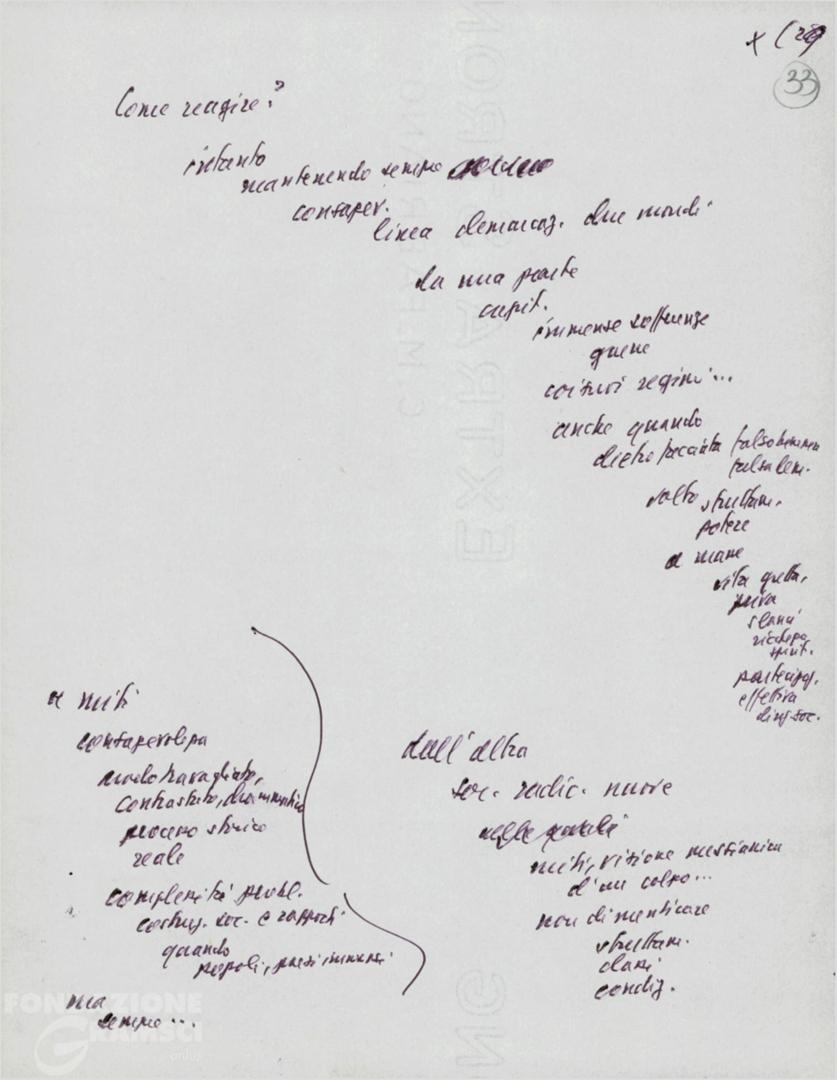 + (29)
33
Come reagire?
intanto
mantenendo sempre
consapev.
linea demarcaz. due mondi
da una parte
capit.
immense sofferenze
guerre
costruì regimi...
anche quando
dietro facciata falso benessere
falsa dem.
volto sfruttam.
potere
a mare
vita gretta,
priva
slanci
ricchezza
spirit.
partecipaz.
effettiva
diritti soc.
dall'altra
soc. radic. nuove
nelle quali
miti, visione messianica
d'un colpo...
non dimenticare
sfruttam.
classi
condiz.
a miti
consapevolezza
modo travagliato,
contrastato, drammatico
processo storico
reale
complessità probl.
costruz. soc. e rapporti
quando
popoli, paesi immensi
ma
sempre...
FONDAZIONE
GRAMSCI
onlus
EXTRA STRONG